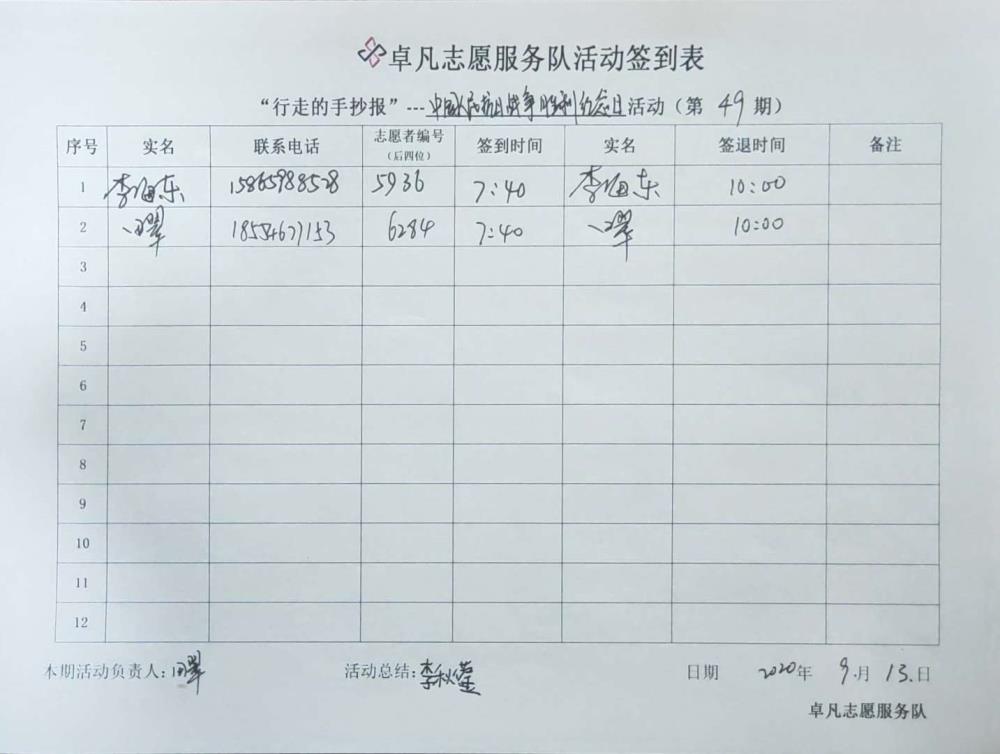 卓凡志愿服务队活动签到表
“行走的手抄报”---中国人民抗日战争胜利纪念日活动（第 49 期）
序号 实名 联系电话 志愿者编号（后四位） 签到时间 实名 签退时间 备注
1 李海东 15865988528 5936 7:40 李海东 10:00
2 田翠 18554677153 6284 7:40 田翠 10:00
3
4
5
6
7
8
9
10
11
12
本期活动负责人:田翠 活动总结:李秋莹 日期 2020年 9月 13.日
卓凡志愿服务队